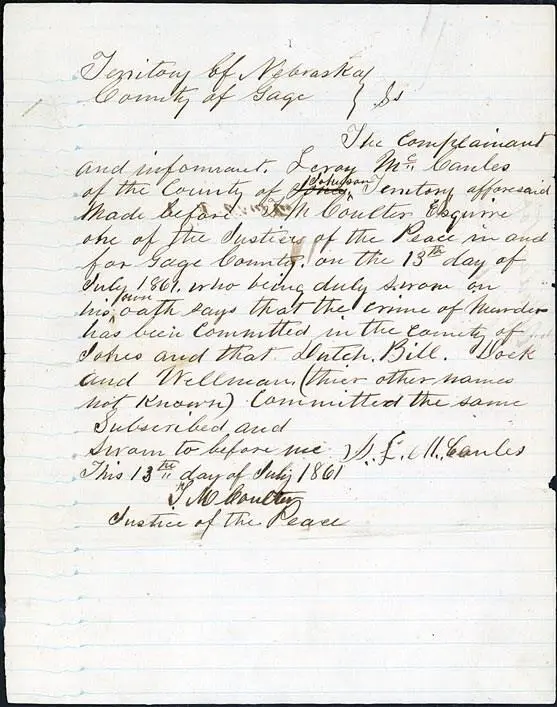 Territory of Nebraska
County of Gage } ss
The Complainant
and informant, Leroy McCanles
of the County of Johnson Territory afforesaid
Made before T M Coulter Esquire
one of the Justices of the Peace in and
for Gage County, on the 13th day of
July 1861, who being duly sworn on
his own oath says that the crime of Murder
has been Committed in the County of
Jones and that Dutch Bill, Dock
and Wellman, (thier other names
not known) Committed the same
Subscribed and
sworn to before me L. McCanles
This 13th day of July 1861
T M Coulter
Justice of the Peace